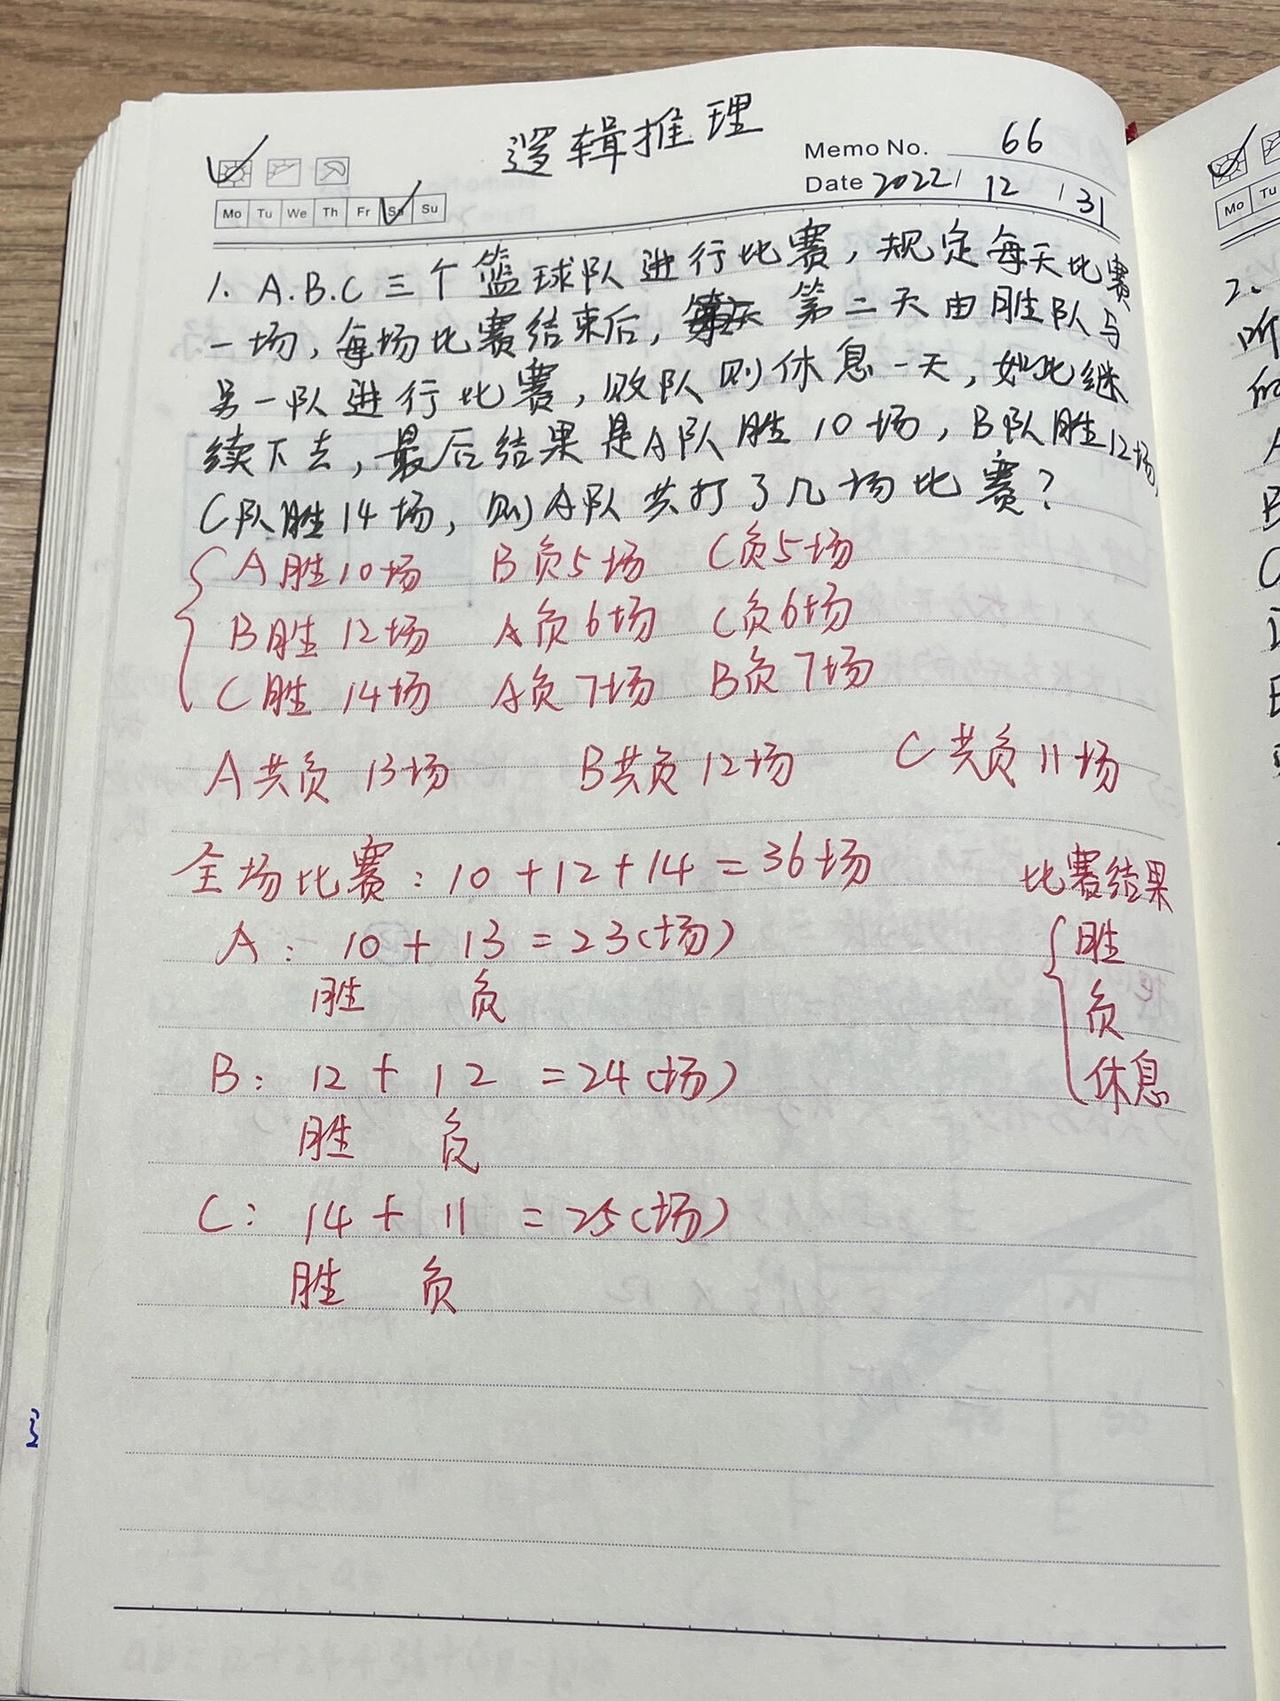 逻辑推理
Memo No. 66
Date 2022 / 12 / 31
Mo Tu We Th Fr Sa Su
1. A.B.C三个篮球队进行比赛，规定每天比赛
一场，每场比赛结束后，第二天由胜队与
另一队进行比赛，败队则休息一天，如此继
续下去，最后结果是A队胜10场，B队胜12场，
C队胜14场，则A队共打了几场比赛？
A胜10场 B负5场 C负5场
B胜12场 A负6场 C负6场
C胜14场 A负7场 B负7场
A共负13场 B共负12场 C共负11场
全场比赛：10+12+14=36场
比赛结果
胜
负
休息
A： 10 + 13 = 23(场)
胜 负
B： 12 + 12 =24(场)
胜 负
C： 14 + 11 = 25(场)
胜 负
Mo Tu
2.
听